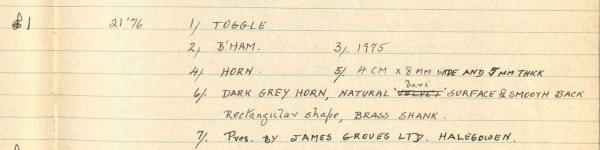 1 21'76 1/ TOGGLE
2/ B'HAM. 3/. 1975
4/ HORN. 5/. 4 CM x 8 MM WIDE AND 5 MM THICK
6/ DARK GREY HORN, NATURAL 'bark' SURFACE & SMOOTH BACK
Rectangular shape, BRASS SHANK.
7/. Pres. BY JAMES GROVES LTD. HALESOWEN.